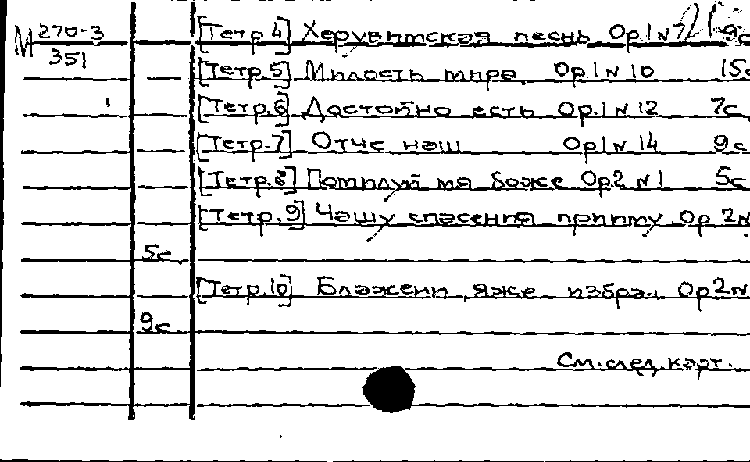 М 270-3
351
[Тетр.4] Херувимская песнь Op.1 N 7 9с
[Тетр.5] Милость мира. Op.1 N 10 15с
[Тетр.6] Достойно есть Op.1 N 12 7с
[Тетр.7] Отче наш Op.1 N 14 9с
[Тетр.8] Помилуй мя боже Op.2 N 1 5с
[Тетр.9] Чашу спасения прииму Op.2 N
5с.
[Тетр.10] Блажени, яже избрал Op.2 N
9с
См. след. карт.